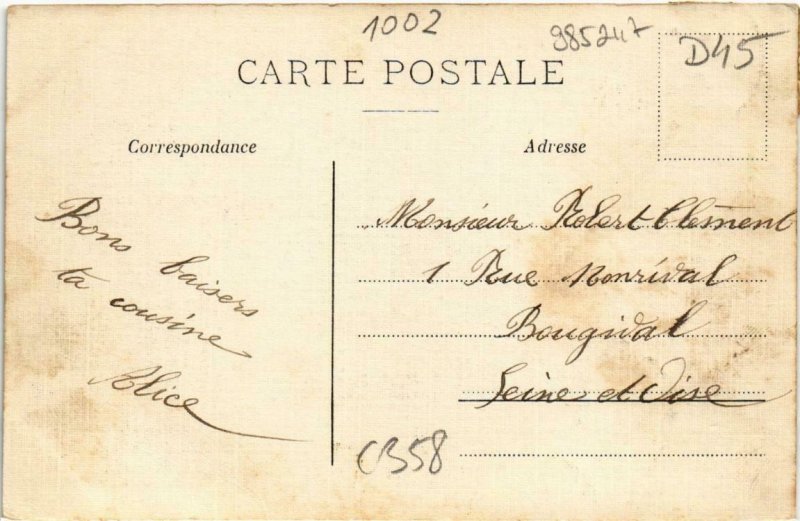 1002
985247
D45
CARTE POSTALE
Correspondance
Adresse
Bons baisers
ta cousine
Alice
Monsieur Robert Clement
1 Rue Monrival
Bougival
Seine et Oise
CB58